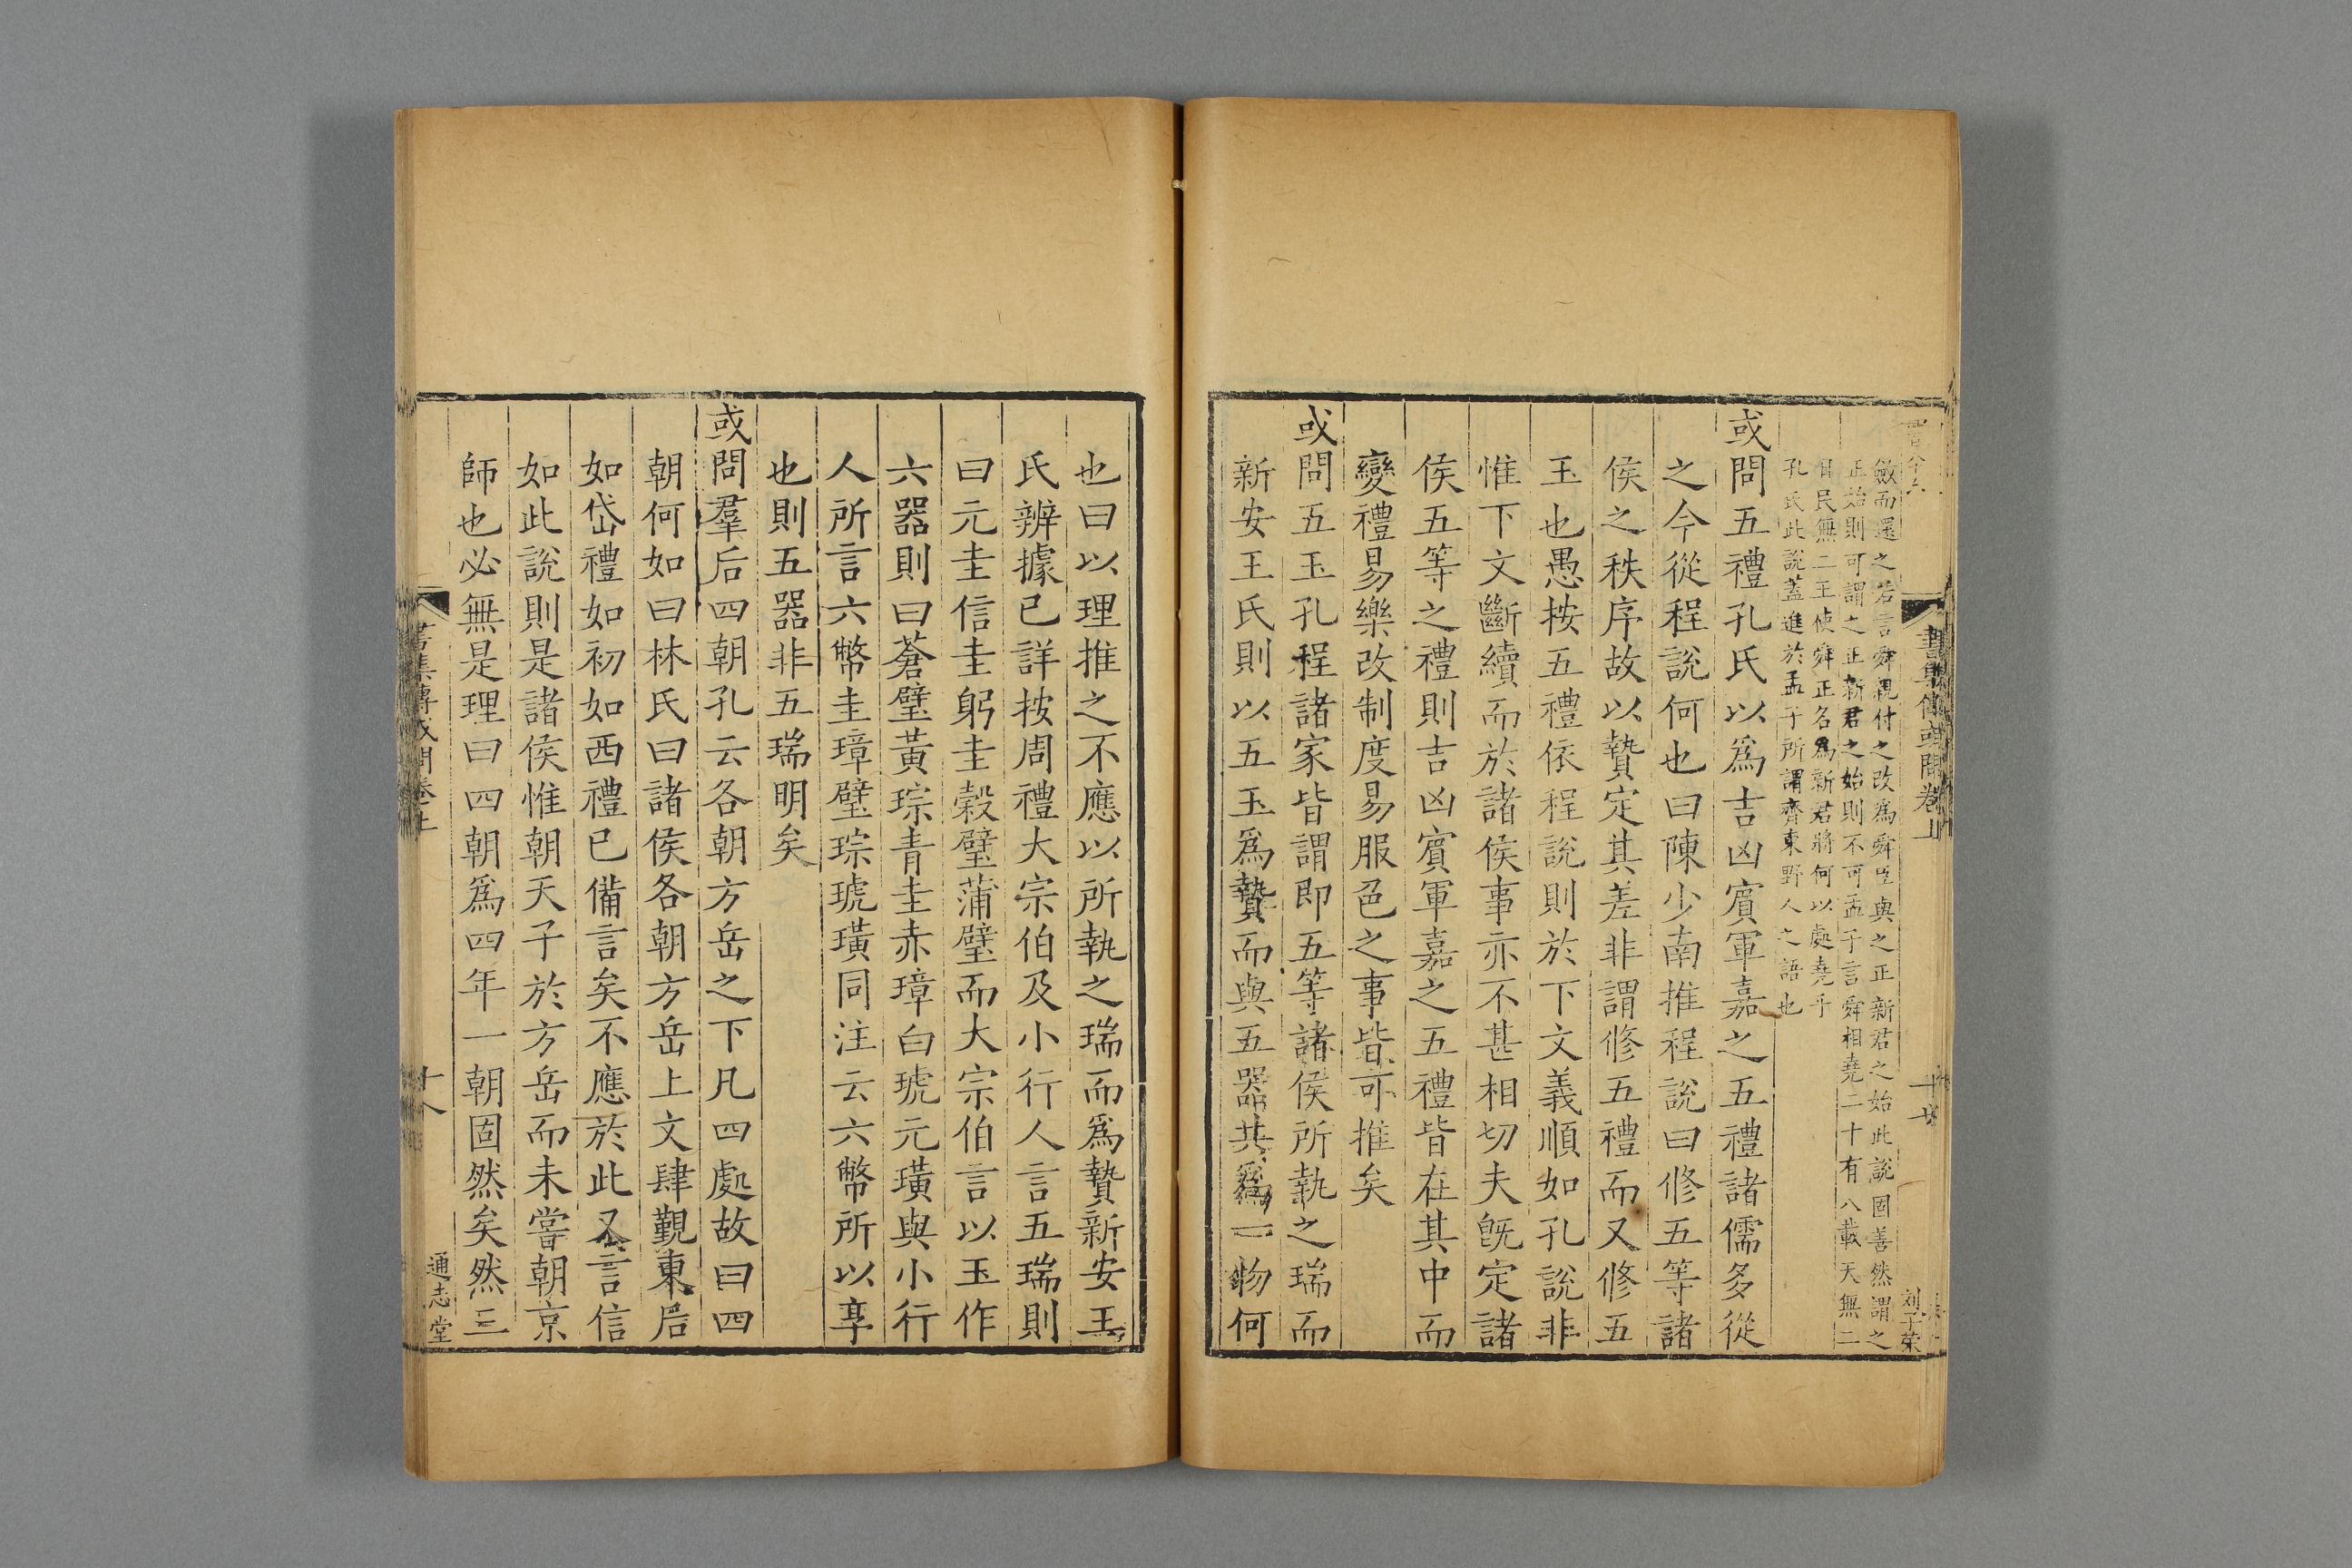 書集傳或問卷上
十七
斂而還之若言舜親付之改為舜臣與之正新君之始此說固善然謂之
正始則可謂之正新君之始則不可孟子言舜相堯二十有八載天無二
日民無二王使舜正名為新君將何以處堯乎
孔氏此說蓋進於孟子所謂齊東野人之語也
或問五禮孔氏以爲吉凶賔軍嘉之五禮諸儒多從
之今從程說何也曰陳少南推程說曰修五等諸
侯之秩序故以贄定其差非謂修五禮而又修五
玉也愚按五禮依程說則於下文義順如孔說非
惟下文斷續而於諸侯事亦不甚相切夫旣定諸
侯五等之禮則吉凶賔軍嘉之五禮皆在其中而
變禮易樂改制度易服色之事皆可推矣
或問五玉孔程諸家皆謂即五等諸侯所執之瑞而
新安王氏則以五玉爲贄而與五器共爲一物何
也曰以理推之不應以所執之瑞而爲贄新安王
氏辨據已詳按周禮大宗伯及小行人言五瑞則
曰元圭信圭躬圭榖璧蒲璧而大宗伯言以玉作
六器則曰蒼璧黃琮青圭赤璋白琥元璜與小行
人所言六幣圭璋璧琮琥璜同注云六幣所以享
也則五器非五瑞明矣
或問羣后四朝孔云各朝方岳之下凡四處故曰四
朝何如曰林氏曰諸侯各朝方岳上文肆覲東后
如岱禮如初如西禮已備言矣不應於此又言信
如此說則是諸侯惟朝天子於方岳而未嘗朝京
師也必無是理曰四朝爲四年一朝固然矣然三
書集傳或問卷上
十八
通志堂